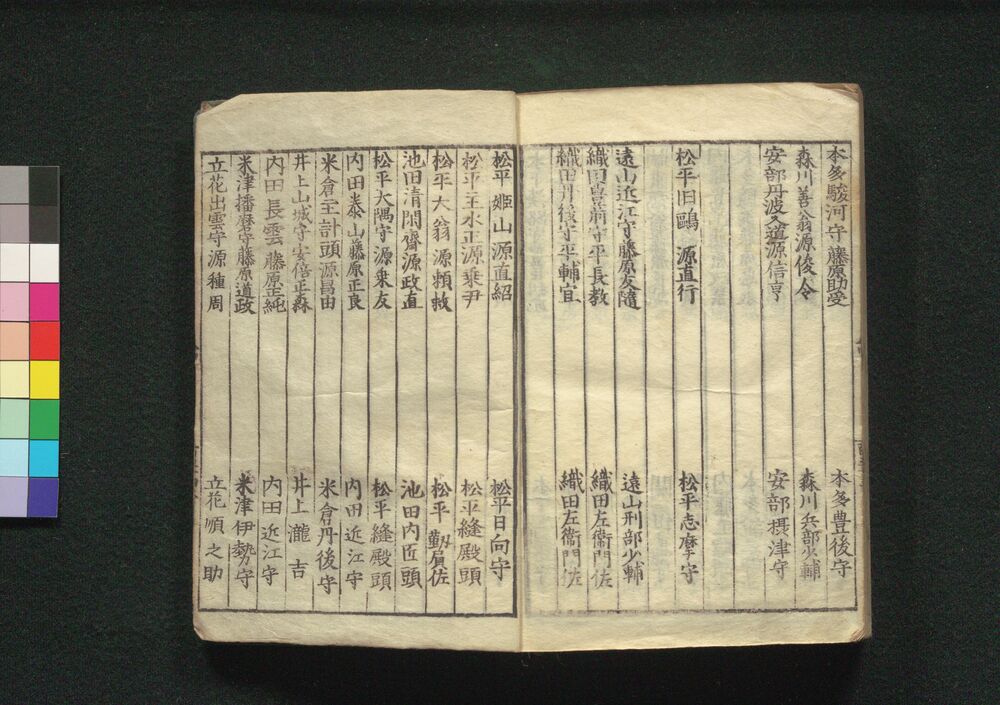 本多駿河守藤原助受 本多豊後守
森川善翁源俊令 森川兵部少輔
安部丹波入道源信亨 安部摂津守
松平旧鷗 源直行 松平志摩守
遠山近江守藤原友随 遠山刑部少輔
織田豊前守平長教 織田左衛門佐
織田丹後守平輔宜 織田左衛門佐
松平姫山源直紹 松平日向守
松平主水正源乗尹 松平縫殿頭
松平大翁源頼救 松平勘屓佐
池田清閑齋源政直 池田内匠頭
松平大隅守源乗友 松平縫殿頭
内田泰山藤原正良 内田近江守
米倉主計頭源昌由 米倉丹後守
井上山城守安倍正森 井上瀧吉
内田長雲藤原正純 内田近江守
米津播磨守藤原道政 米津伊勢守
立花出雲守源種周 立花順之助